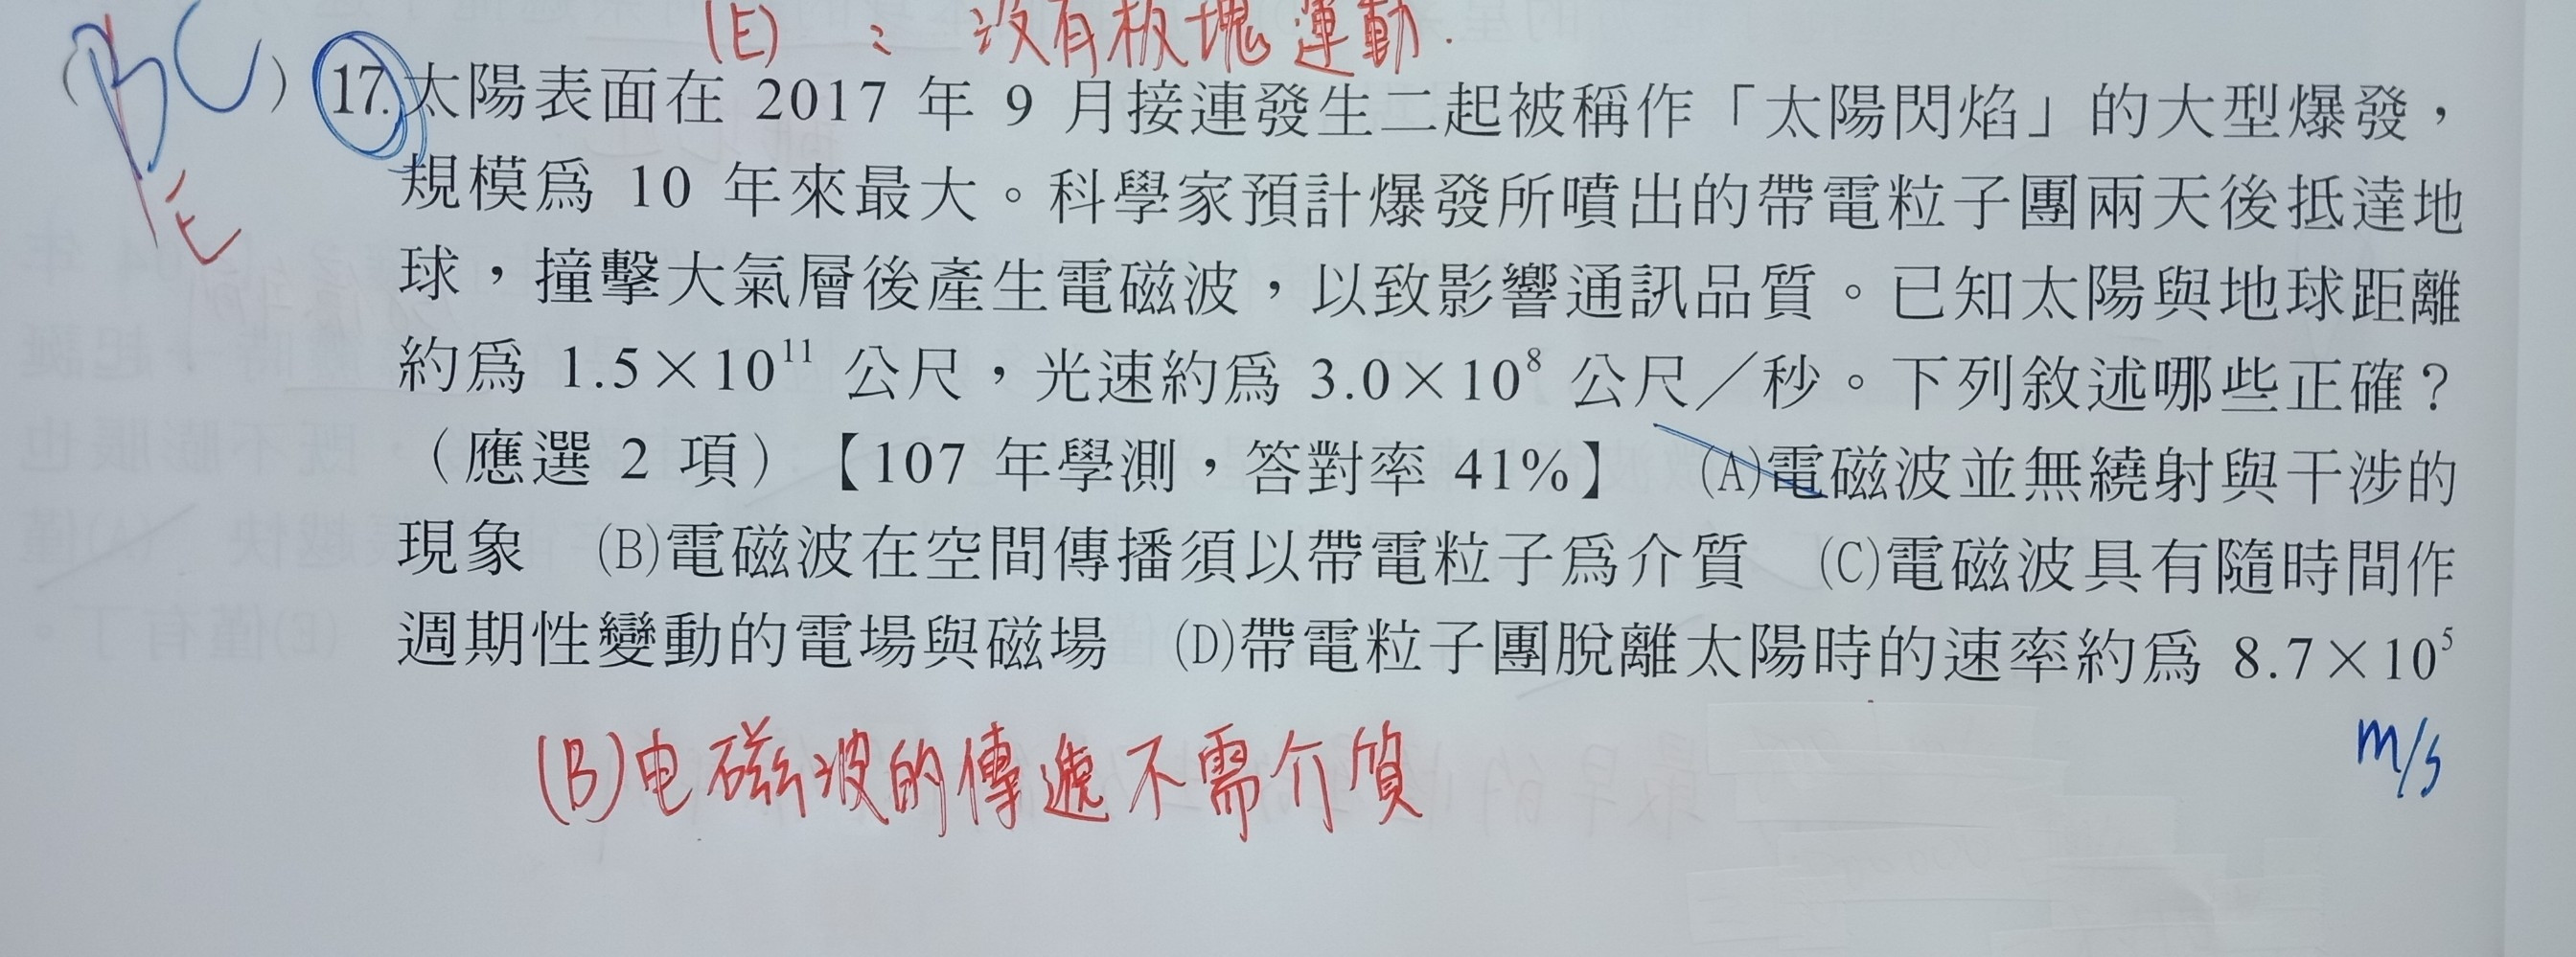 (E)：沒有板塊運動.
(BC) 17.太陽表面在 2017 年 9 月接連發生二起被稱作「太陽閃焰」的大型爆發，
E
規模為 10 年來最大。科學家預計爆發所噴出的帶電粒子團兩天後抵達地
球，撞擊大氣層後產生電磁波，以致影響通訊品質。已知太陽與地球距離
約為 1.5×10¹¹ 公尺，光速約為 3.0×10⁸ 公尺／秒。下列敘述哪些正確？
（應選 2 項）【107 年學測，答對率 41%】 (A)電磁波並無繞射與干涉的
現象 (B)電磁波在空間傳播須以帶電粒子為介質 (C)電磁波具有隨時間作
週期性變動的電場與磁場 (D)帶電粒子團脫離太陽時的速率約為 8.7×10⁵
m/s
(B)电磁波的傳遞不需介質